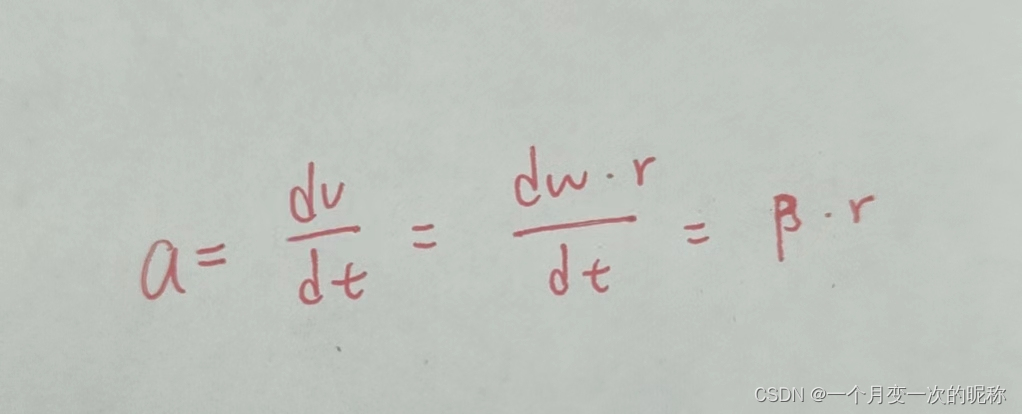 a = dv/dt = dw·r/dt = β·r
CSDN @一个月变一次的昵称